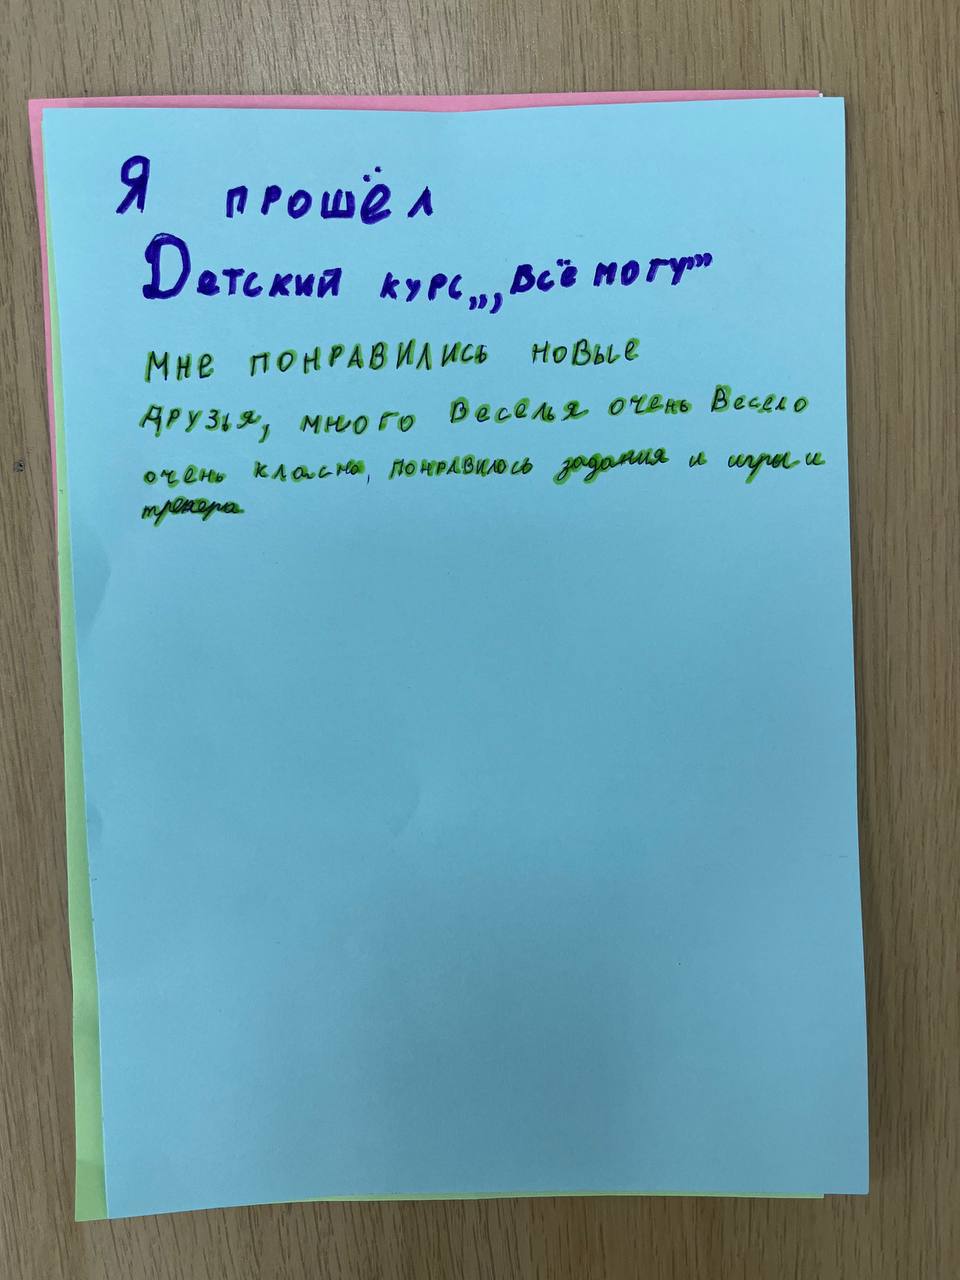 Я прошёл
Детский курс,,, всё могу""
Мне понравились новые
друзья, много Веселья очень Весело
очень класна, понравилось задания и игры и
тренера